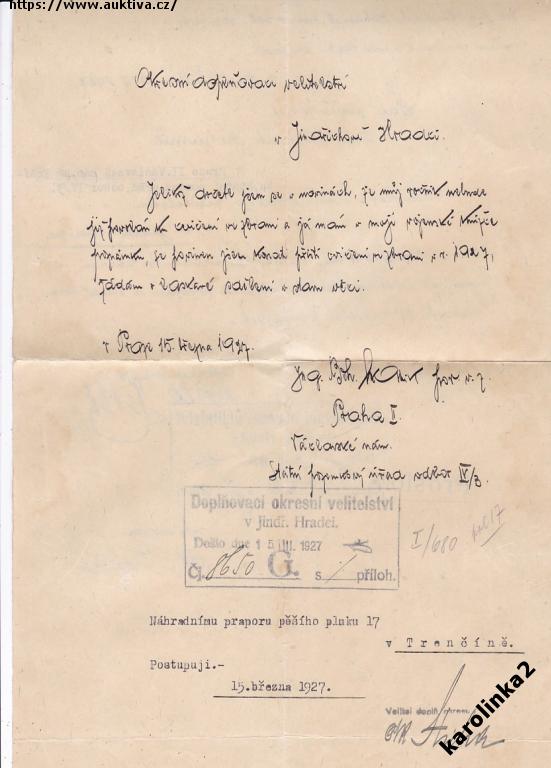 https://www.auktiva.cz/
Okresní doplňovací velitelství
v Jindřichově Hradci.
Jelikož dočetl jsem se v novinách, že můj ročník nebude
již povolán ku cvičení ve zbrani a já mám v mojí vojenské knížce
poznámku, že povinen jsem konati příští cvičení ve zbrani v r. 1927,
žádám o laskavé sdělení o stavu věci.
v Praze 15. března 1927.
Ing.
Praha II.
Václavské nám.
Státní pozemkový úřad odbor IV/3.
Doplňovací okresní velitelství
v Jindř. Hradci.
Došlo dne 15 III. 1927
Čj. 8650 G. s příloh.
I/680
Náhradnímu praporu pěšího pluku 17
v Trenčíně.
Postupuji.-
15.března 1927.
Velitel doplň. okresu.
karolinka2